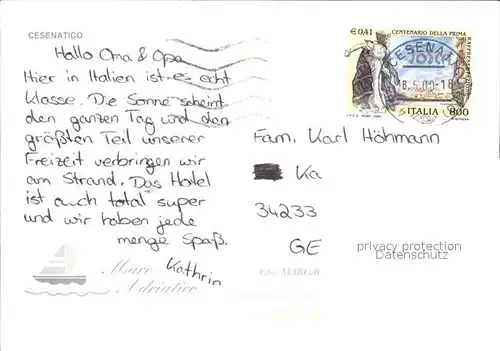 CESENATICO
Hallo Oma & Opa
Hier in Italien ist es echt
klasse. Die Sonne scheint
den ganzen Tag und den
größten Teil unserer
Freizeit verbringen wir
am Strand. Das Hotel
ist auch total super
und wir haben jede
menge Spaß.
Kathrin
Mare
Adriatico
€ 0,41 CENTENARIO DELLA PRIMA
TOSCA
ITALIA 800
CESENA
8.5.00-18
Fam. Karl Höhmann
Ka
34233
GE
privacy protection
Datenschutz